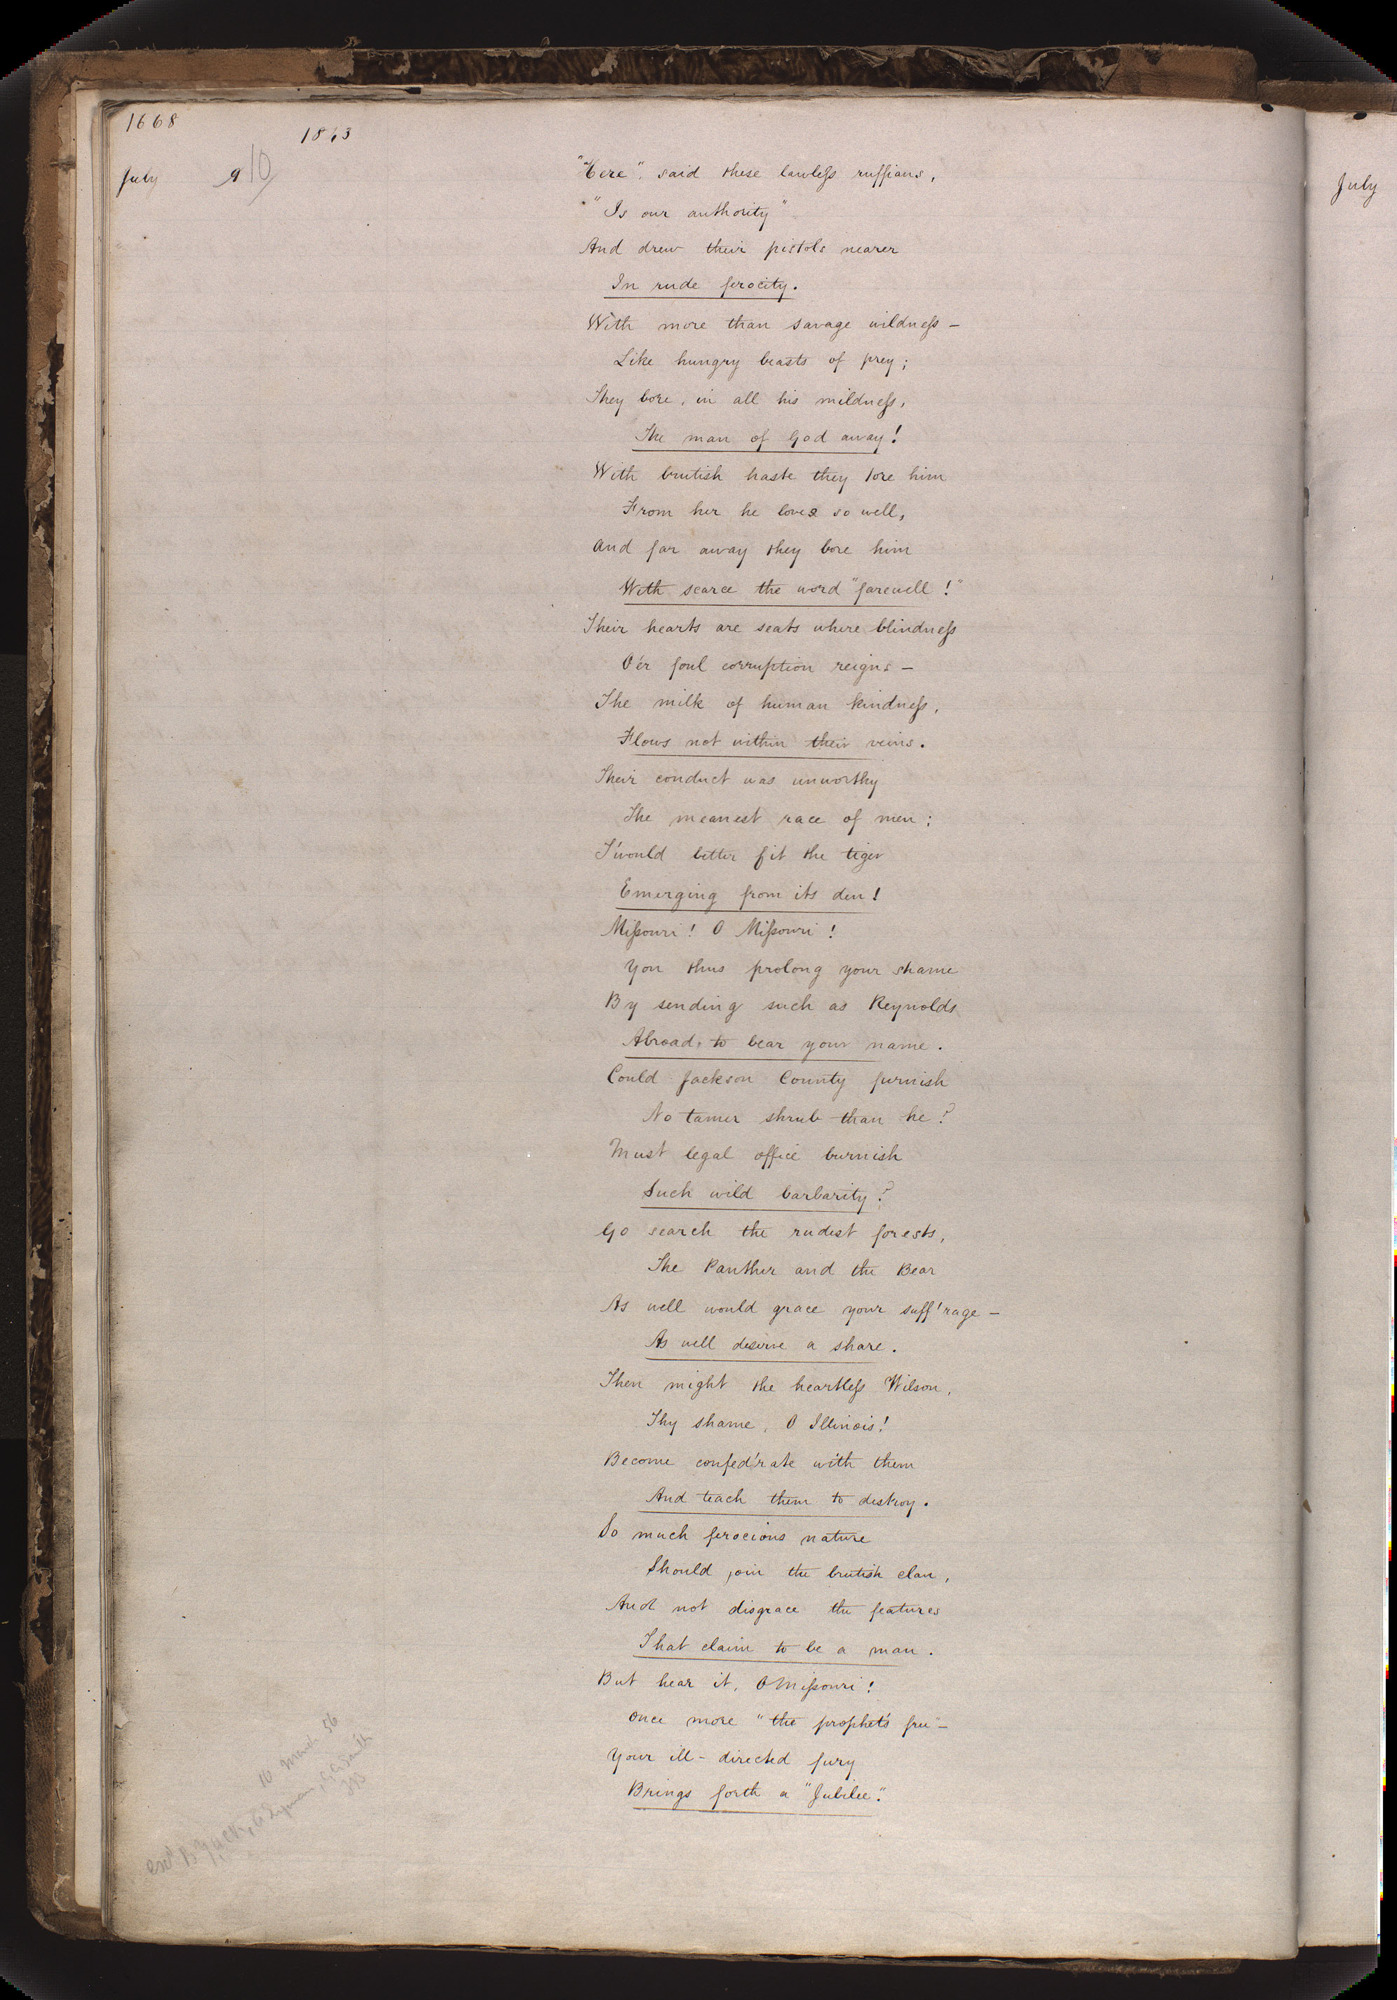 1668
1843
July 9 10
"Here", said these lawless ruffians,
"Is our authority"
And drew their pistols nearer
In rude ferocity.
With more than savage wildness –
Like hungry beasts of prey;
They bore, in all his mildness,
The man of God away!
With brutish haste they tore him
From her he loves so well,
And far away they bore him
With scarce the word "farewell!"
Their hearts are seats where blindness
O'er foul corruption reigns –
The milk of human kindness,
Flows not within their veins.
Their conduct was unworthy
The meanest race of men;
T'would better fit the tiger
Emerging from its den!
Missouri! O Missouri!
You thus prolong your shame
By sending such as Reynolds
Abroad, to bear your name.
Could Jackson County furnish
No tamer shrub than he?
Must legal office burnish
Such wild barbarity?
Go search the rudest forests,
The Panther and the Bear
As well would grace your suff'rage –
As well deserve a share.
Then might the heartless Wilson,
Thy shame, O Illinois!
Become confed'rate with them
And teach them to destroy.
So much ferocious nature
Should join the brutish clan,
And not disgrace the features
That claim to be a man.
But hear it, O Missouri!
Once more "the prophet's free" –
Your ill-directed fury
Brings forth a "Jubilee".
July